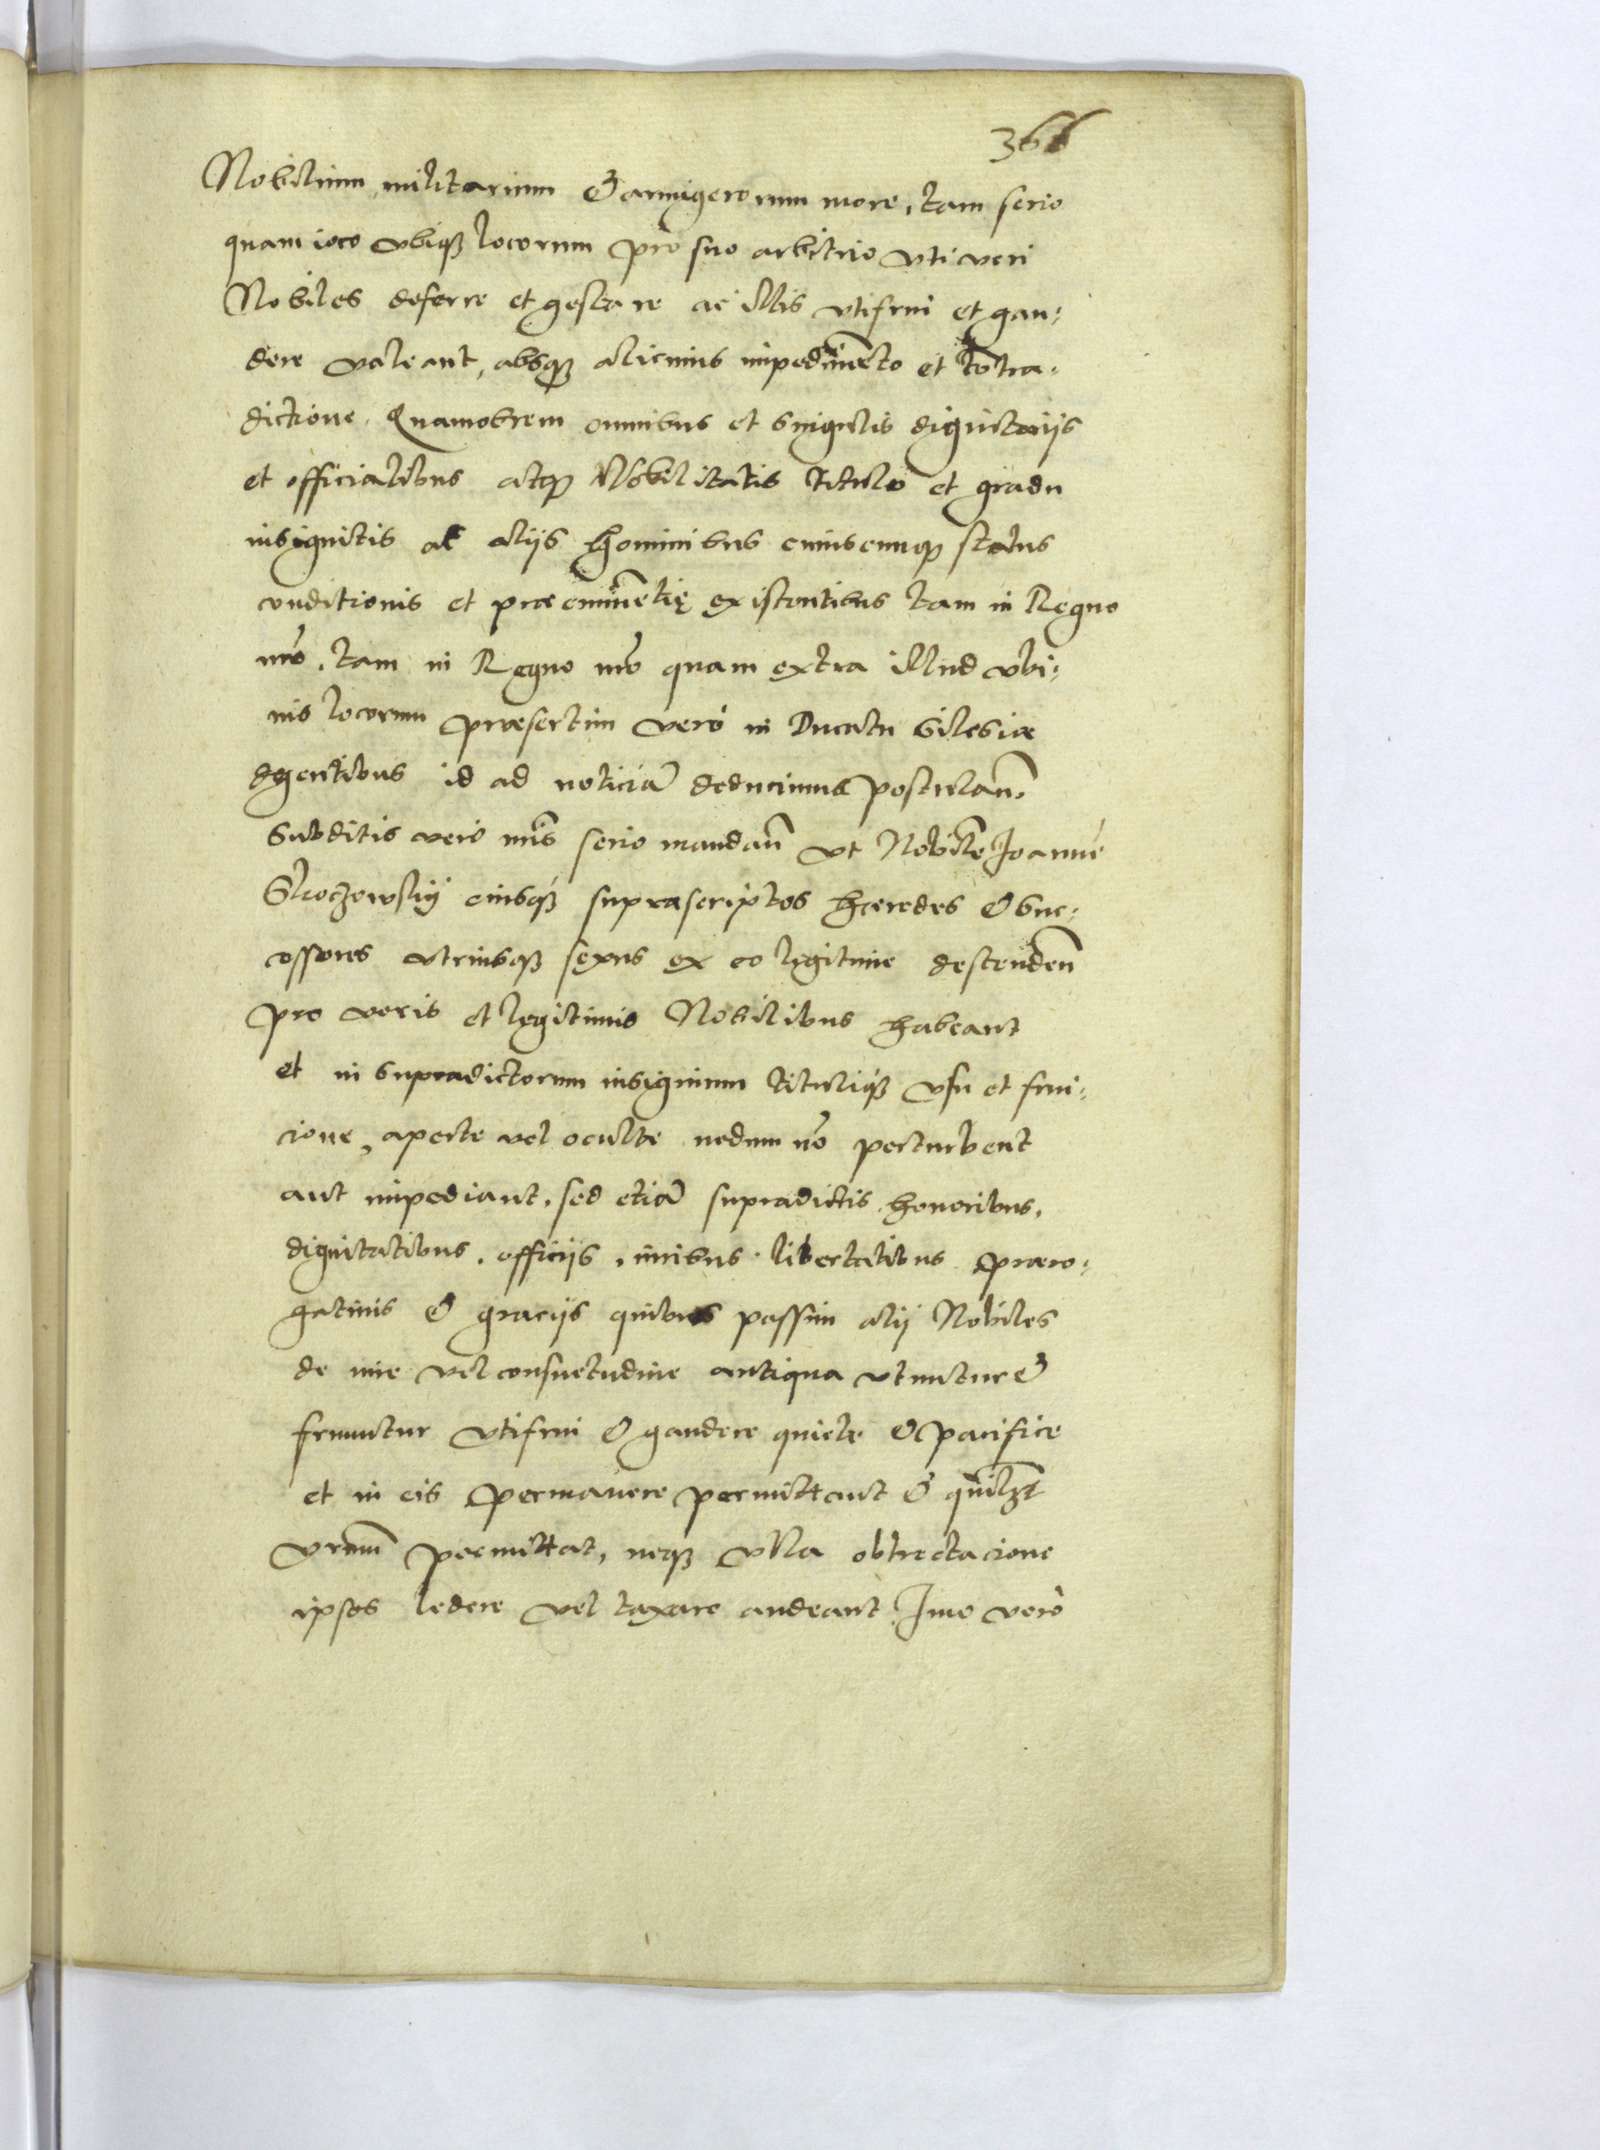 366
Nobilium militarium & armigerorum more, tam serio
quam ioco vbiqꝫ locorum pro suo arbitrio vti veri
Nobiles deferre et gestare ac illis vtifrui et gau:
dere valeant, absqꝫ alicuius impedimẽto et cõtra:
dictione. Quamobrem omnibus et singulis dignitariis
et officialibus atqꝫ Nobilitatis titulo et gradu
insignitis ac aliis hominibus cuiuscunqꝫ status
conditionis et præeminẽtię existentibus tam in Regno
nr̃o, tam in Regno nr̃o quam extra illud vbi:
uis locorum præsertim verò in Ducatu Silesiæ
degentibus id ad noticiã deducimus postulan̄.
Subditis verò nr̃is serio mandan̄ vt Nobilẽ Joannẽ
eiusqꝫ suprascriptos hæredes & suc:
cessores vtriusqꝫ sexus ex eo legitime descenden̄
pro veris et legitimis Nobilibus habeant
et in supradictorum insignium tituliqꝫ vsu et frui:
cione, aperte vel oculte nedum nõ perturbent
aut impediant, sed etiã supradictis honoribus,
dignitatibus, officijs, iuribus, libertatibus præro:
gatiuis & gracijs quibus passim alij Nobiles
de iure vel consuetudine antiqua vtuntur &
fruuntur vtifrui & gaudere quiete & pacifice
et in eis permanere permittant & quilꝫt
vr̃um permittat, neqꝫ vlla obtrectacione
ipsos ledere vel taxare audeant. Imo verò